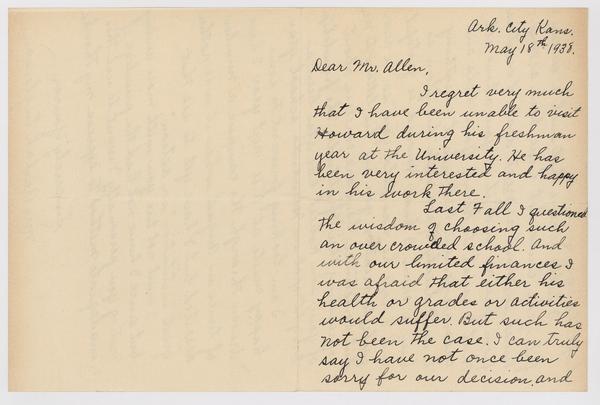 Ark. City Kans.
May 18th 1938.
Dear Mr. Allen,
I regret very much
that I have been unable to visit
Howard during his freshman
year at the University. He has
been very interested and happy
in his work there.
Last Fall I questioned
the wisdom of choosing such
an over crowded school. And
with our limited finances I
was afraid that either his
health or grades or activities
would suffer. But such has
not been the case. I can truly
say I have not once been
sorry for our decision, and